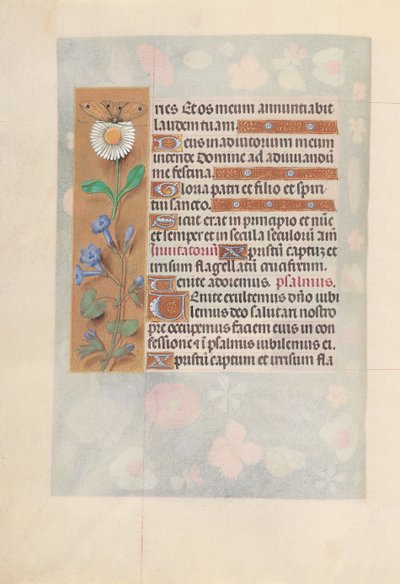 ries Et os meum annuntiabit
laudem tuam.
Deus in adiutorium meum
intende Domine ad adiuuandū
me festina.
Gloria patri et filio et spiri
tui sancto.
Sicut erat in principio et nūc
et semper et in secula seculorū am̄
Inuitatoriū Xpristū captū et
irrisum flagellatū crucifixum.
Uenite adoremus. psalmus.
Uenite exultemus dn̄o iubi
lemus deo salutari nostro
pre occupemus faciem euis in con
fessione et ī psalmis iubilemus ei.
Xpristū captum et irrisum fla